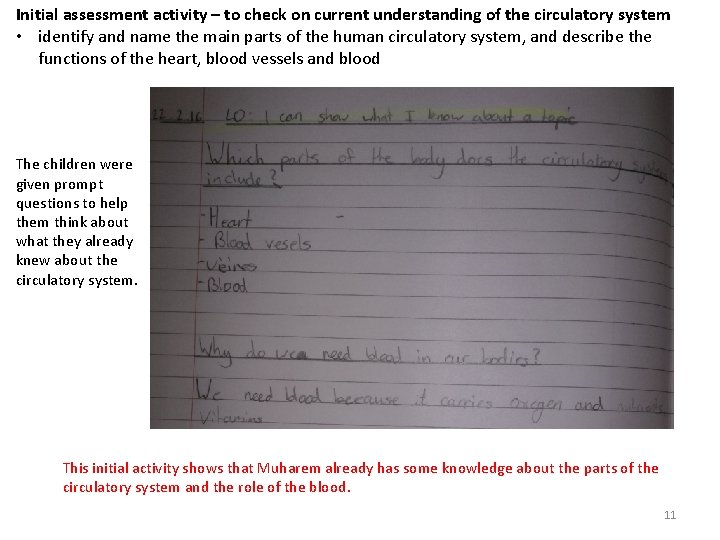 Initial assessment activity – to check on current understanding of the circulatory system
• identify and name the main parts of the human circulatory system, and describe the
functions of the heart, blood vessels and blood
The children were
given prompt
questions to help
them think about
what they already
knew about the
circulatory system.
22.2.16 LO: I can show what I know about a topic
Which parts of the body does the circulatory system
include?
-Heart -
- Blood vesels
- veines
-Blood
Why do we need blood in our bodies?
We need blood because it carries oxegen and
vitamins
This initial activity shows that Muharem already has some knowledge about the parts of the
circulatory system and the role of the blood.
11